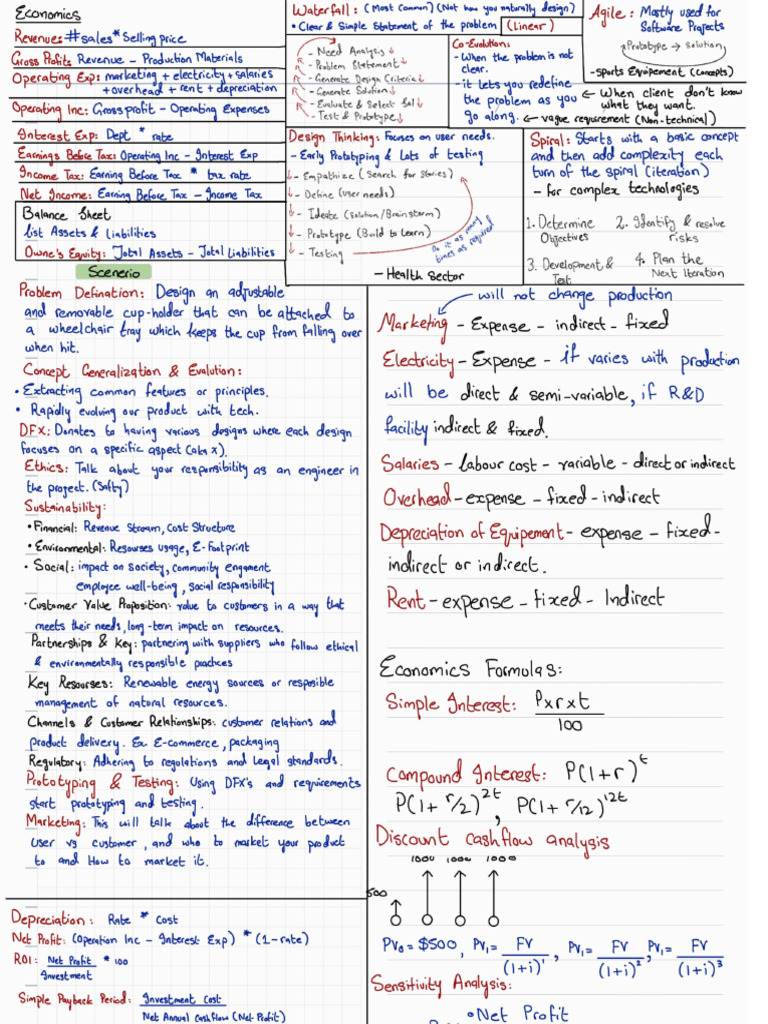 Economics
Revenue: #sales * Selling price
Gross Profit: Revenue - Production Materials
Operating Exp: marketing + electricity + salaries
+ overhead + rent + depreciation
Operating Inc: Gross profit - Operating Expenses
Interest Exp: Dept * rate
Earnings Before Tax: Operating Inc - Interest Exp
Income Tax: Earning Before Tax * tax rate
Net Income: Earning Before Tax - Income Tax
Balance Sheet
List Assets & Liabilities
Owne's Equity: Total Assets - Total Liabilities
Waterfall: (Most common) (Not how you naturally design)
• Clear & Simple Statement of the problem (Linear)
- Need Analysis ↓
- Problem Statement ↓
- Generate Design Criteria ↓
- Generate Solution ↓
- Evaluate & Select Sol ↓
- Test & Prototype ↓
Co-Evolution:
- When the problem is not
clear.
- it lets you redefine
the problem as you
go along.
Agile: Mostly used for
Software Projects
Prototype → Solution
- Sports Equipement (Concepts)
← When client don't know
what they want.
← vague requirement (Non-technical)
Design Thinking: Focuses on user needs.
- Early Prototyping & Lots of testing
↓ - Empathize (Search for stories)
↓ - Define (user needs)
↓ - Ideate (Solution/Brainstorm)
↓ - Prototype (Build to Learn)
↓ - Testing
Do it as many
times as required
- Health Sector
Spiral: Starts with a basic concept
and then add complexity each
turn of the spiral (iteration)
- for complex technologies
1. Determine Objectives
2. Identify & resolve risks
3. Development & Test
4. Plan the Next Iteration
Scenerio
Problem Defination: Design an adjustable
and removable cup-holder that can be attached to
a wheelchair tray which keeps the cup from falling over
when hit.
Concept Generalization & Evalution:
• Extracting common features or principles.
• Rapidly evolving our product with tech.
DFX: Donates to having various designs where each design
focuses on a specific aspect (aka x).
Ethics: Talk about your responsibility as an engineer in
the project. (Safty)
Sustainability:
• Financial: Revenue Stream, Cost Structure
• Environmental: Resourses usage, E-Footprint
• Social: impact on society, community engament
employee well-being, social responsibility
• Customer Value Proposition: value to customers in a way that
meets their needs, long-term impact on resources.
Partnerships & Key: partnering with suppliers who follow ethical
& environmentally responsible practices
Key Resourses: Renewable energy sources or resposible
management of natural resources.
Channels & Customer Relationships: customer relations and
product delivery. Ex E-commerce, packaging
Regulatory: Adhering to regulations and Legal standards.
Prototyping & Testing: Using DFX's and requirements
start prototyping and testing.
Marketing: This will talk about the difference between
User vs customer, and who to market your product
to and How to market it.
Depreciation: Rate * Cost
Net Profit: (Operation Inc - Interest Exp) * (1-rate)
ROI: Net Profit * 100
Investment
Simple Payback Period: Investment Cost
Net Annual Cashflow (Net Profit)
will not change production
Marketing - Expense - indirect - fixed
Electricity - Expense - if varies with production
will be direct & semi-variable, if R&D
facility indirect & fixed.
Salaries - Labour cost - variable - direct or indirect
Overhead - expense - fixed - indirect
Depreciation of Equipement - expense - fixed -
indirect or indirect.
Rent - expense - fixed - Indirect
Economics Formulas:
Simple Interest: P x r x t
100
Compound Interest: P(1+r)^t
P(1+ r/2)^2t, P(1+ r/12)^12t
Discount cashflow analysis
500 1000 1000 1000
PV₀ = $500, PV₁ = FV/(1+i)¹, PV₁ = FV/(1+i)², PV₁ = FV/(1+i)³
Sensitivity Analysis:
• Net Profit